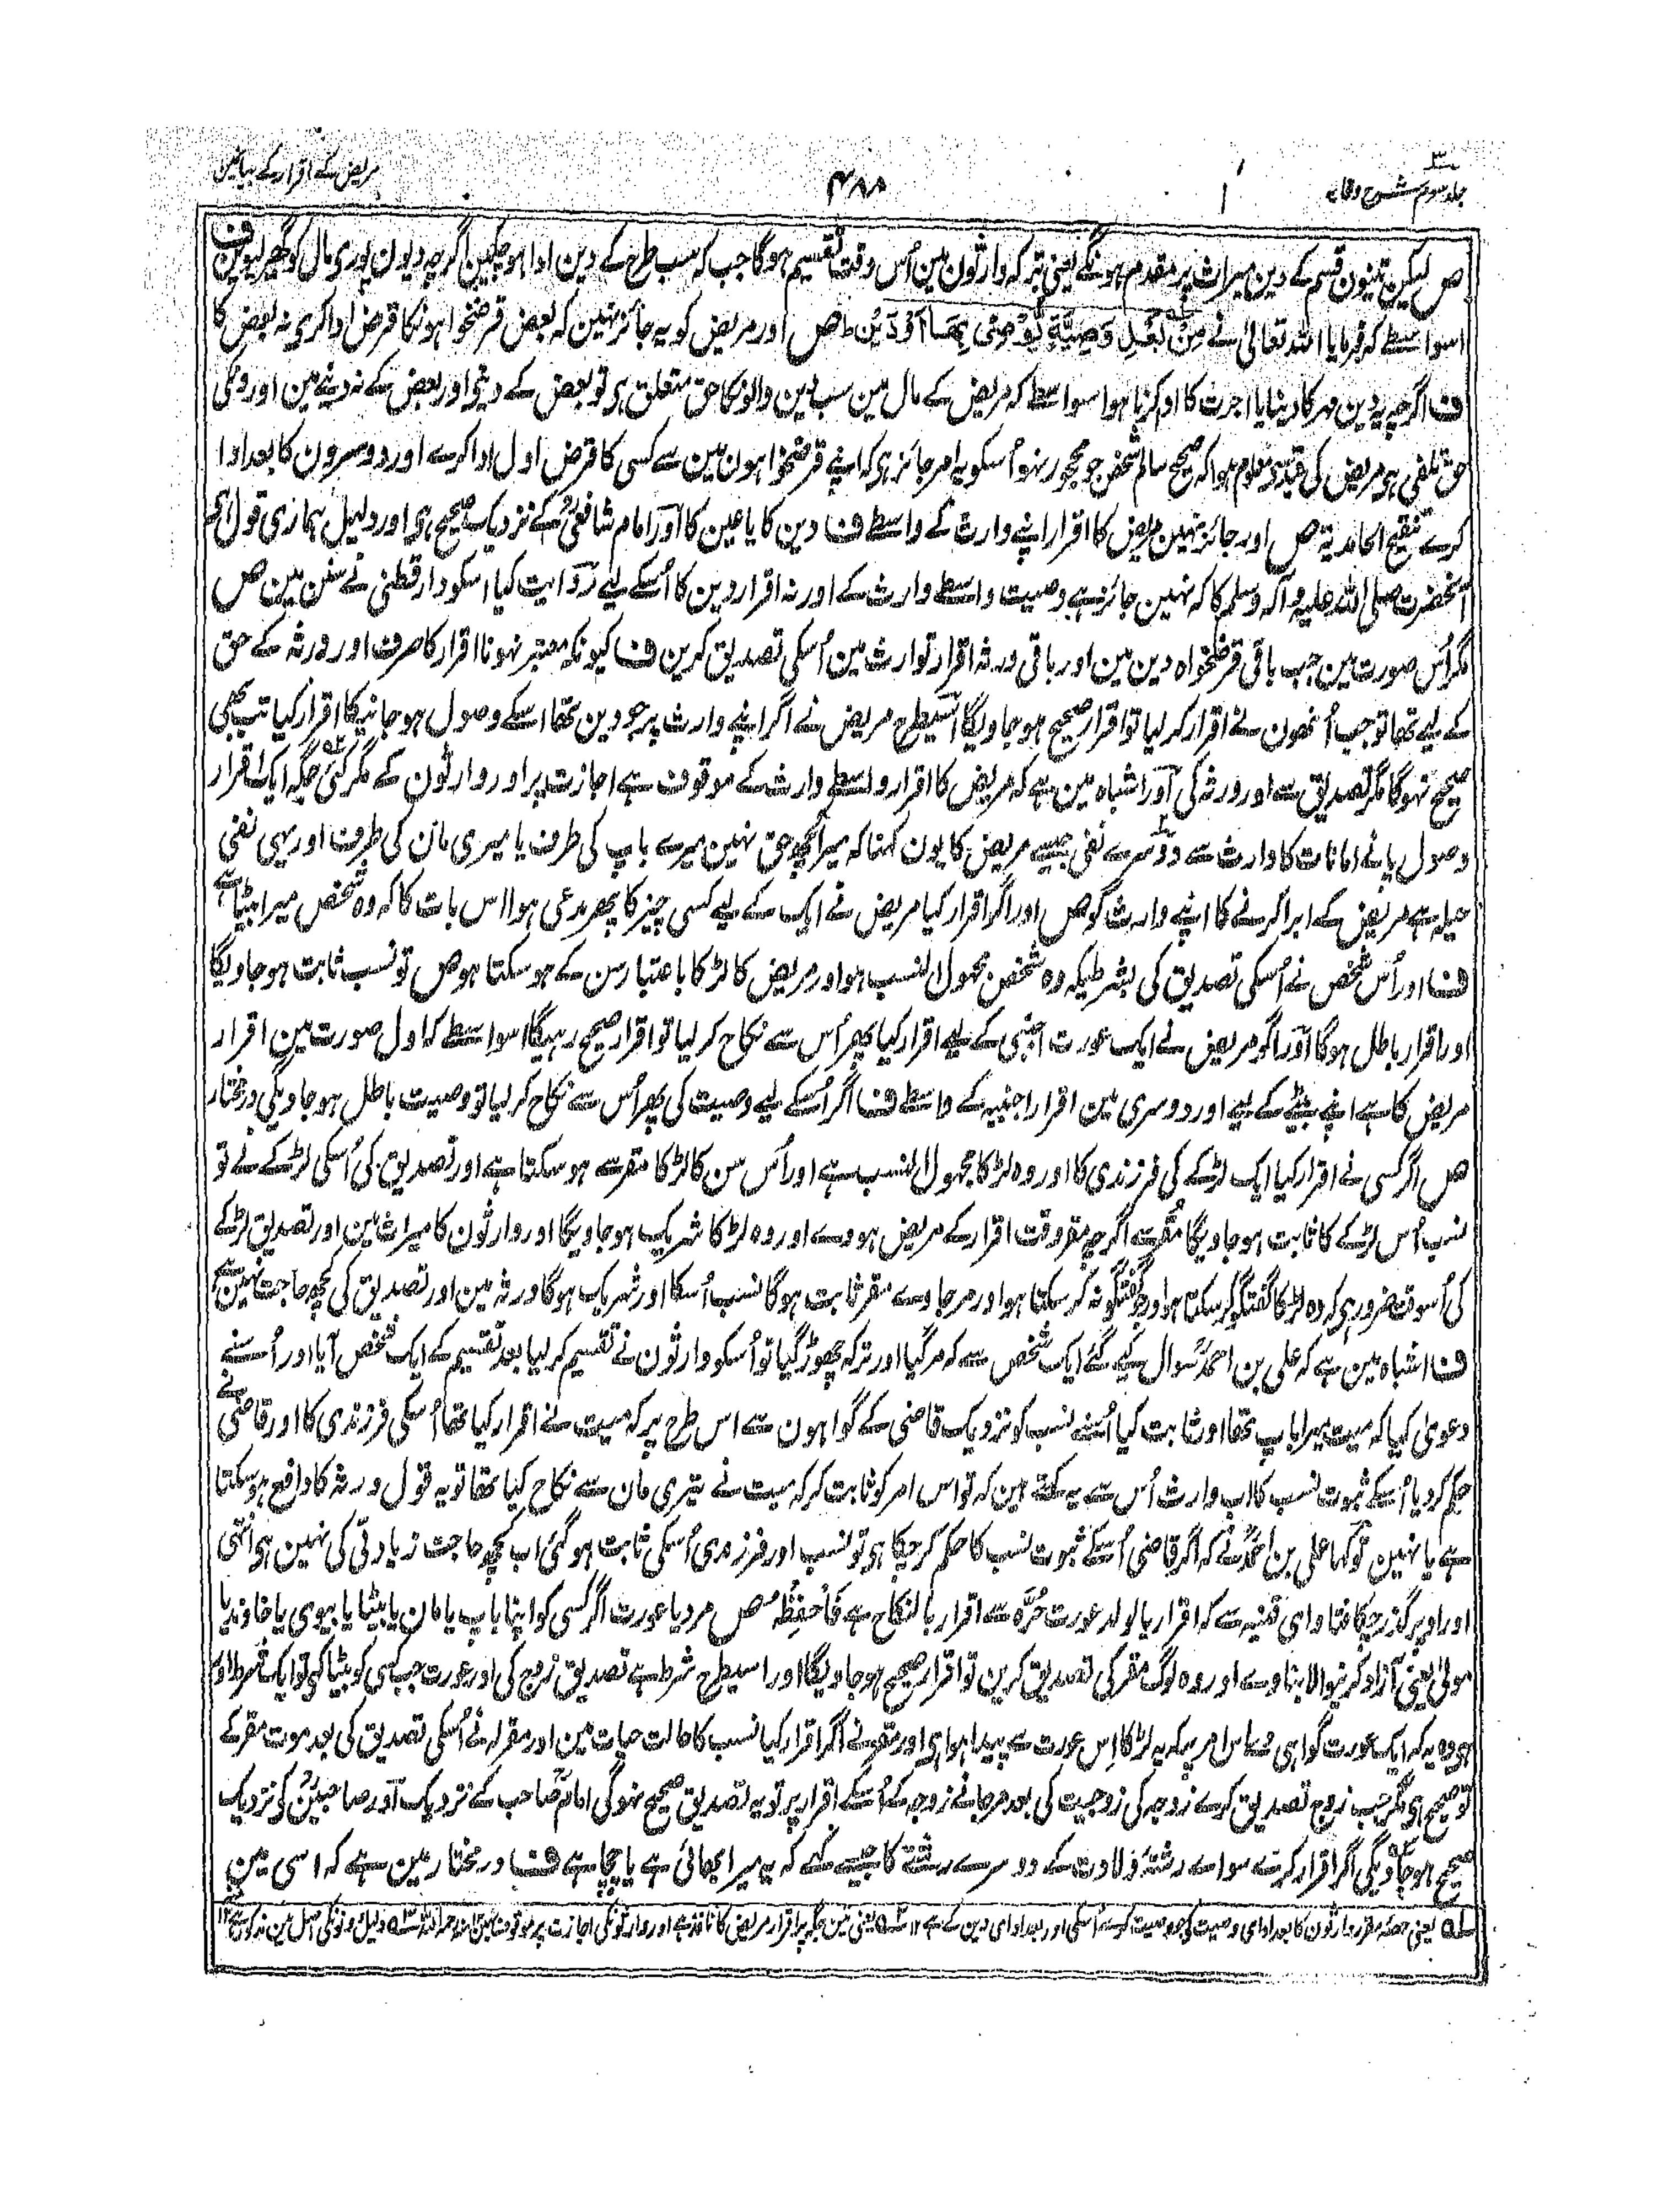 جلد سوم شرح وقایہ
۴۸۸
مریض کے اقرار کے بیان مین
ص لیکن تینون قسم کے دین میراث پر مقدم ہونگے یعنی ترکہ وارثون مین اُس وقت تقسیم ہوگا جب کہ سب طرح کے دین ادا ہو چکین اگرچہ دیون پوری مال کو گھیر لیوین ف
اسواسطے کہ فرمایا اللہ تعالیٰ نے مِنْ بَعْدِ وَصِیَّةٍ یُوْصٰی بِهَا اَوْ دَیْنٍ ط ص اور مریض کو یہ جائز نہین کہ بعض قرضخواہونکا قرض ادا کری نہ بعض کا
ف اگرچہ یہ دین مہر کا دینا یا اجرت کا اوکرنا ہوا سواسطے کہ مریض کے مال مین سب دین والونکا حق متعلق ہی تو بعض کے دینے اور بعض کے نہ دینے مین اورونکی
حق تلفی ہو مریض کی قید سے معلوم ہوا کہ صحیح سالم شخص جو مجبور نہو اُسکو یہ امر جائز ہی کہ اپنے قرضخواہون مین سے کسی کا قرض اول ادا کرے اور دوسرون کا بعد ادا
کرے تنقیح الحامدیة ص اور جائز نہین مریض کا اقرار اپنے وارث کے واسطے ف دین کا یا عین کا اور امام شافعیؒ کے نزدیک صحیح ہی اور دلیل ہماری قول ہی
آنحضرت صلی اللہ علیہ وآلہ وسلم کا کہ نہین جائز ہے وصیت واسطے وارث کے اور نہ اقرار دین کا اُسکے لیے روایت کیا اسکو دارقطنی نے سنن مین ص
مگر اُس صورت مین جب باقی قرضخواہ دین مین اور باقی ورثہ اقرار وارث مین اُسکی تصدیق کرین ف کیونکہ معتبر نہونا اقرار کا صرف اور ورثہ کے حق
کے لیے تھا تو جب اُنھون نے اقرار کر لیا تو اقرار صحیح ہو جاویگا اسیطرح مریض نے اگر اپنے وارث پر جو دین تھا اسکے وصول ہو جانیکا اقرار کیا تب بھی
صحیح نہوگا مگر تصدیق سے اور ورثہ کی اور اشباہ مین ہے کہ مریض کا اقرار واسطے وارث کے موقوف ہے اجازت پر اور وارثون کے مگر کئی جگہ ایک اقرار
وصول پانے امانات کا وارث سے دوسرے نفی جیسے مریض کا یون کہنا کہ میرا کچھ حق نہین میرے باپ کی طرف یا میری مان کی طرف اور یہی نفی
حیلہ ہے مریض کے ابرا کرنے کا اپنے وارث کو ص اور اگر اقرار کیا مریض نے ایک کے لیے کسی چیز کا پھر مدعی ہوا اس بات کا کہ وہ شخص میرا بیٹا ہے
ف اور اُس شخص نے اُسکی تصدیق کی بشرطیکہ وہ شخص مجہول النسب ہو اور مریض کا لڑکا باعتبار سن کے ہو سکتا ہو ص تو نسب ثابت ہو جاویگا
اور اقرار باطل ہوگا اور اگر مریض نے ایک عورت اجنبی کے لیے اقرار کیا پھر اُس سے نکاح کر لیا تو اقرار صحیح رہیگا اسواسطے کہ اول صورت مین اقرار
مریض کا ہے اپنے بیٹے کے لیے اور دوسری مین اقرار اجنبیہ کے واسطے ف اگر اُسکے لیے وصیت کی پھر اُس سے نکاح کر لیا تو وصیت باطل ہو جاویگی درمختار
ص اگر کسی نے اقرار کیا ایک لڑکے کی فرزندی کا اور وہ لڑکا مجہول النسب ہے اور اُس سن کا لڑکا مقر سے ہو سکتا ہے اور تصدیق کی اُسکی لڑکے نے تو
نسب اُس لڑکے کا ثابت ہو جاویگا مقر سے اگرچہ مقر وقت اقرار کے مریض ہووے اور وہ لڑکا شریک ہو جاویگا اور وارثون کا میراث مین اور تصدیق لڑکے
کی اُسوقت ضرور ہی کہ وہ لڑکا گفتگو کر سکتا ہو اور جو گفتگو نہ کر سکتا ہو اور مر جاوے مقر ثابت ہوگا نسب اُسکا اور شریک ہوگا ورثہ مین اور تصدیق کی کچھ حاجت نہین ہے
ف اشباہ مین ہے کہ علی بن احمدؒ سوال کیے گئے ایک شخص سے کہ مر گیا اور ترکہ چھوڑ گیا تو اُسکو وارثون نے تقسیم کر لیا بعد تقسیم کے ایک شخص آیا اور اُسنے
دعویٰ کیا کہ میت میرا باپ تھا اور ثابت کیا اُسنے نسب کو نزدیک قاضی کے گواہون سے اس طرح پر کہ میت نے اقرار کیا تھا اُسکی فرزندی کا اور قاضی نے
حکم کر دیا اُسکے ثبوت نسب کا اب وارث اُس سے یہ کہتے ہین کہ تو اس امر کو ثابت کر کہ میت نے تیری مان سے نکاح کیا تھا تو یہ قول ورثہ کا دافع ہو سکتا
ہے یا نہین تو کہا علی بن احمدؒ نے کہ اگر قاضی اُسکے ثبوت نسب کا حکم کر چکا ہی تو نسب اور فرزندی اُسکی ثابت ہو گئی اب کچھ حاجت زیادتی کی نہین ہی انتہی
اور اوپر گذر چکا فتاوای قنیہ سے کہ اقرار بالولد عورت حُرّہ سے اقرار بالنکاح ہے فَاحْفَظْہُ ص مرد یا عورت اگر کسی کو اپنا باپ یا مان یا بیٹا یا بیوی یا خاوند یا
مولیٰ یعنی آزاد کرنیوالا بناوے اور وہ لوگ مقر کی تصدیق کرین تو اقرار صحیح ہو جاویگا اور اسیطرح شرط ہے تصدیق زوج کی اور عورت جب کسی کو بیٹا کہی تو ایک شرط اور
ہی وہ یہ کہ ایک عورت گواہی دے اس امر پر کہ یہ لڑکا اِس عورت سے پیدا ہوا ہی اور مقر نے اگر اقرار کیا نسب کا حالت حیات مین اور مقر لہ نے اُسکی تصدیق کی بعد موت مقر کے
تو صحیح ہی مگر جب زوج تصدیق کرے زوجہ کی زوجیت کی بعد مر جانے زوجہ کے اُسکے اقرار پر تو یہ تصدیق صحیح نہوگی امامؒ صاحب کے نزدیک اور صاحبینؒ کی نزدیک
صحیح ہو جاویگی اگر اقرار کرے سواے رشتۂ ولادت کے دوسرے رشتے کا جیسے کہے کہ یہ میرا بھائی ہے یا چچا ہے ف درمختار مین ہے کہ اسی مین
ـلـه یعنی حصۂ مقرر وارثون کا بعد اداے وصیت کی جو وصیت کرے اُسکی اور بعد اداے دین کے ہے ۱۲ یعنی تین جگہ پر اقرار مریض کا نافذ ہے اور وارثونکی اجازت پر موقوف نہین دلیل دونونکی اصل مین مذکور ہے ۱۲